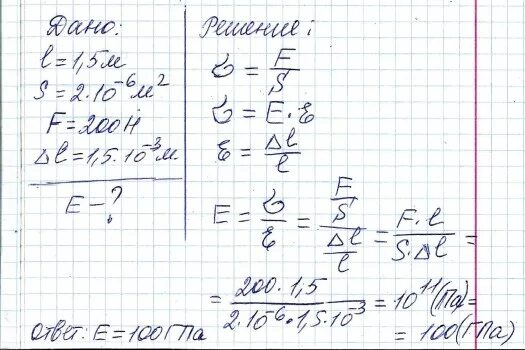 Дано:
l = 1,5 м
S = 2·10⁻⁶ м²
F = 200 Н
Δl = 1,5·10⁻³ м
E - ?
Решение:
σ = F/S
σ = E·ε
ε = Δl/l
E = σ/ε = (F/S)/(Δl/l) = F·l/(S·Δl) =
= 200·1,5/(2·10⁻⁶·1,5·10⁻³) = 10¹¹ (Па) =
= 100 (ГПа)
Ответ: E = 100 ГПа